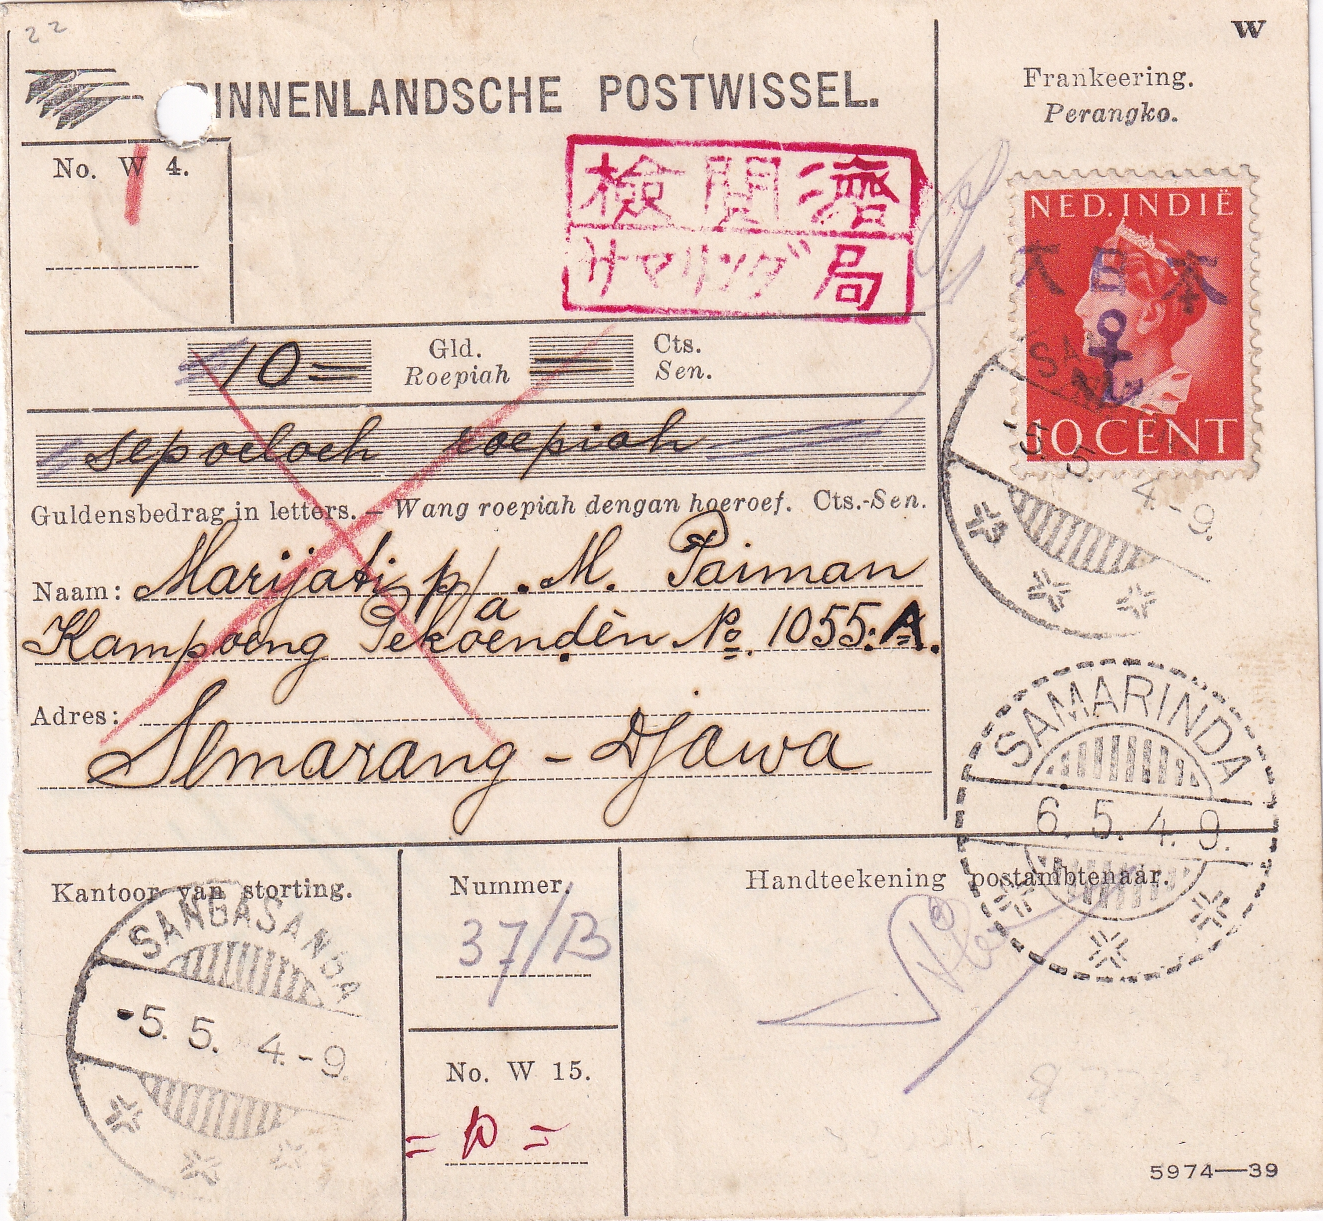 22
W
BINNENLANDSCHE POSTWISSEL.
Frankeering.
Perangko.
No. W 4.
検閲済
サマリンダ局
NED. INDIË
大日本
10 CENT
SAN
5. 5. 4.-9.
10=
Gld.
Roepiah
Cts.
Sen.
sepoeloeh roepiah
Guldensbedrag in letters. — Wang roepiah dengan hoeroef. Cts.-Sen.
Naam: Marijati p/a. M. Paiman
Kampoeng Pekoendèn No. 1055.A.
Adres:
Semarang - Djawa
SAMARINDA
6. 5. 4. 9.
Kantoor van storting.
SANGASANGA
-5. 5. 4.-9.
Nummer.
37/B
Handteekening postambtenaar.
No. W 15.
= 10 =
5974—39